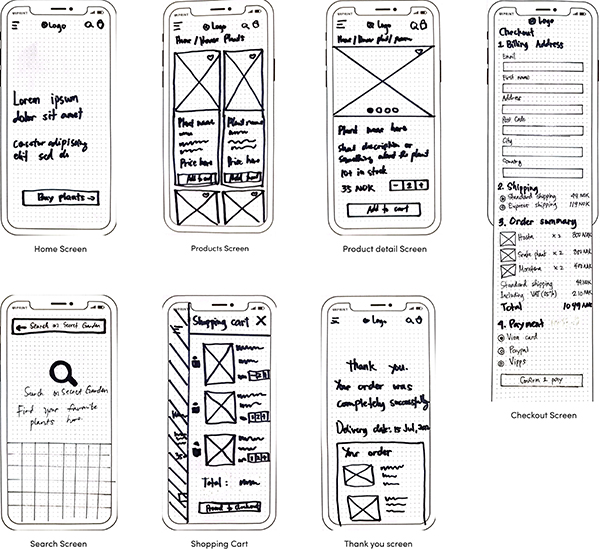 Logo
Lorem ipsum
dolor sit amet
elit sed do
Buy plants →
Home Screen
Logo
Home / House Plants
Plant name
Plant name
Price here
Price here
Add to cart
Add to cart
Products Screen
Logo
Home / House plant / 
Plant name here
Short description or
something about the plant
10+ in stock
35 NOK
- 2 +
Add to cart
Product detail Screen
Logo
Checkout
1. Billing Address
Email
First name
Address
Post Code
City
Country
2. Shipping
Standard shipping 49 NOK
Express shipping 119 NOK
3. Order summary
Hosta x 2 800 NOK
Snake plant x 2
Monstera x 2
Standard shipping 49 NOK
Including VAT 210 NOK
Total 1049 NOK
4. Payment
Visa card
Paypal
Vipps
Confirm & pay
Checkout Screen
← Search on Secret Garden
Search on Secret Garden
Find your favorite
plants here
Search Screen
Shopping cart ×
Total :
Proceed to checkout
Shopping Cart
Logo
Thank you.
Your order was
completely successfully
Delivery date: 15 Jul,
Your order
Thank you screen